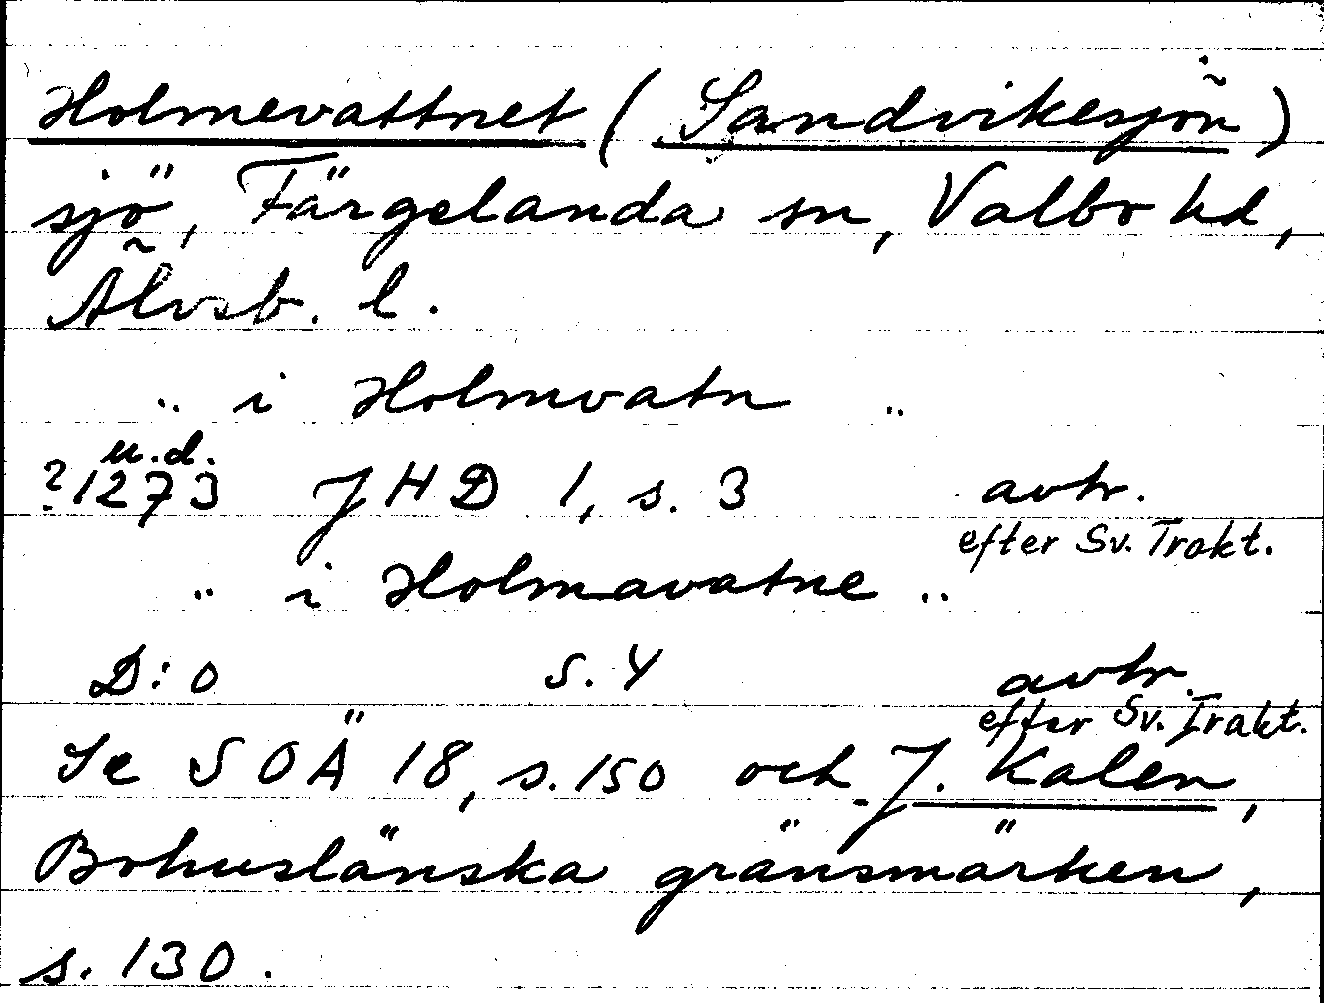 Holmevattnet (Sandvikesjön)
sjö, Färgelanda sn, Valbo hd,
Älvsb. l.
.. i Holmvatn ..
u.d.
?1273 JHD 1, s. 3 avtr.
efter Sv. Trakt.
.. i Holmavatne ..
D:o S. 4 avtr.
efter Sv. Trakt.
Se SOÄ 18, s. 150 och J. Kalen,
Bohuslänska gränsmärken,
s. 130.